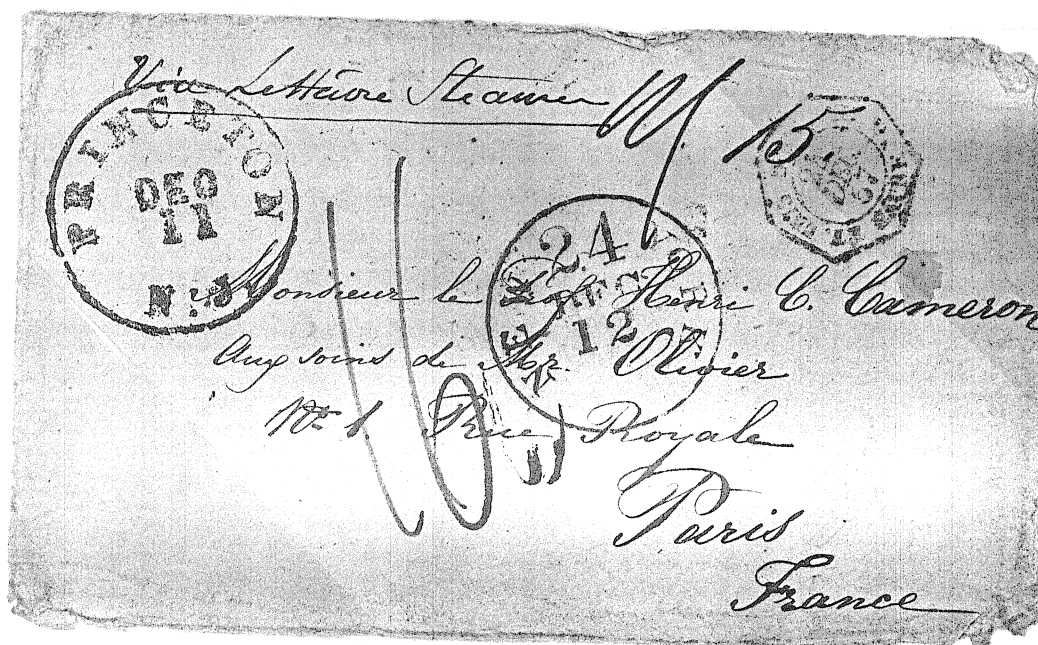 Via Le Hâvre Steamer
15
PRINCETON
DEC
11
N. J.
24
NEW
DEC
12
Monsieur le Prof. Henri C. Cameron
Aux soins de Mr. Olivier
No. 1 Rue Royale
Paris
France